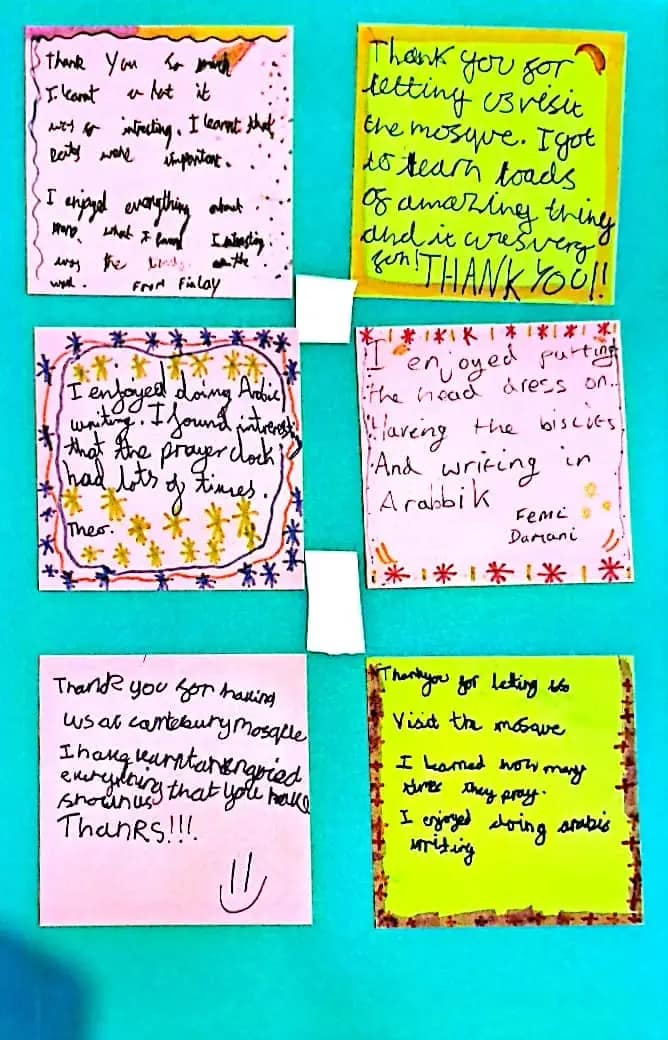 Thank you so much
I learnt a lot it
was so intrecting. I learnt that
were important.
I enjoyed everything about
what I found Intresting
was the on the
wall. From Finlay
Thank you for
letting us visit
the mosque. I got
to learn loads
of amazing thing
and it was very
fun! THANK YOU!!
I enjoyed doing Arabic
writing. I found intresting
that the prayer clock
had lots of times.
Theo.
I enjoyed putting
the head dress on.
Having the biscies
And writing in
Arabbik
Femi
Damani
Thank you for having
us at cantebury mosque
I have learnt an engoied
everything that you have
shown us
Thanks!!!
Thankyou for letting us
Visit the mosque
I learned how many
times they pray.
I enjoyed doing arabic
writing